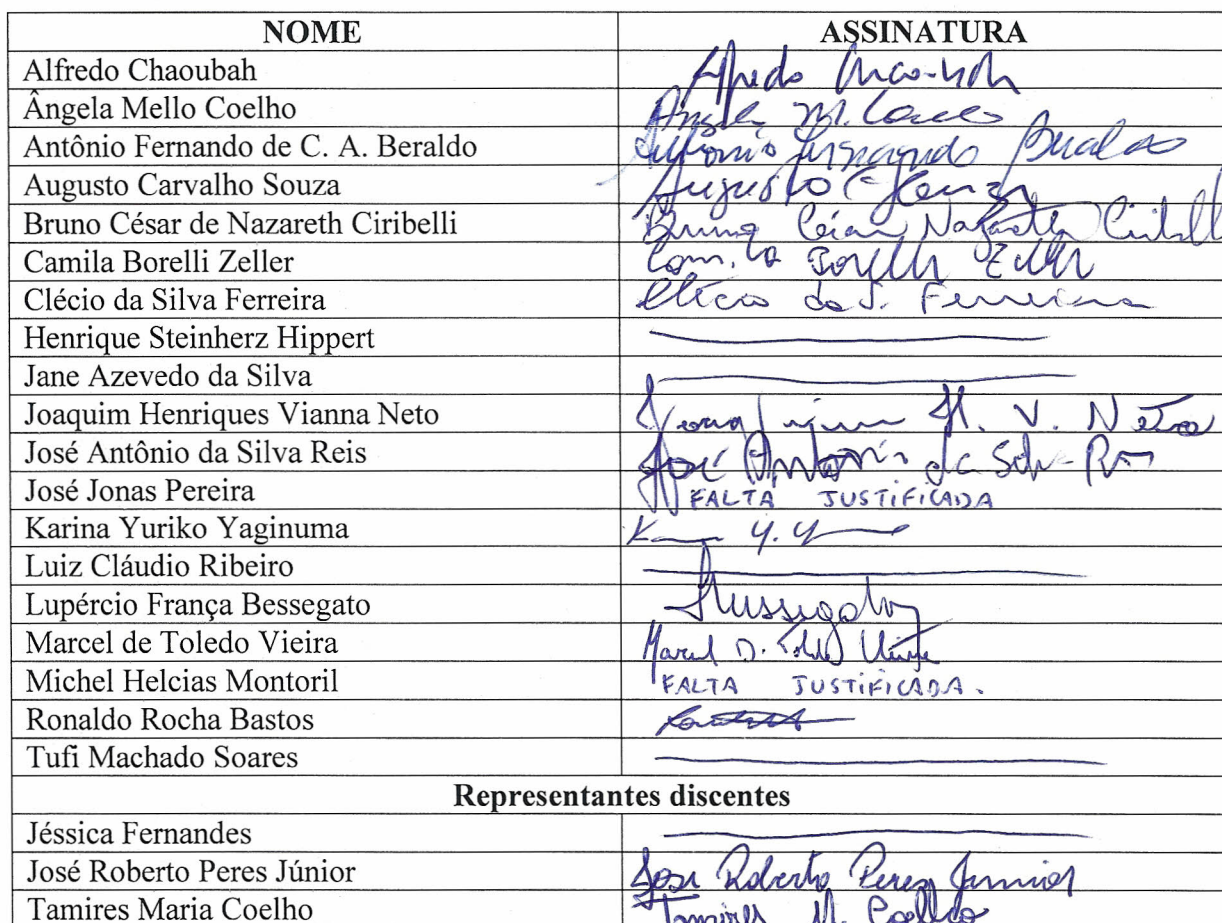 NOME ASSINATURA
Alfredo Chaoubah Alfredo
Ângela Mello Coelho Angela M. Coelho
Antônio Fernando de C. A. Beraldo Antonio Fernando Beraldo
Augusto Carvalho Souza Augusto C. Souza
Bruno César de Nazareth Ciribelli Bruno César Nazareth Ciribelli
Camila Borelli Zeller Camila Borelli Zeller
Clécio da Silva Ferreira Clécio da S. Ferreira
Henrique Steinherz Hippert
Jane Azevedo da Silva
Joaquim Henriques Vianna Neto Joaquim H. V. Neto
José Antônio da Silva Reis José Antonio da Silva Reis
José Jonas Pereira FALTA JUSTIFICADA
Karina Yuriko Yaginuma K Y. Y
Luiz Cláudio Ribeiro
Lupércio França Bessegato
Marcel de Toledo Vieira Marcel D. Toledo Vieira
Michel Helcias Montoril FALTA JUSTIFICADA.
Ronaldo Rocha Bastos
Tufi Machado Soares
Representantes discentes
Jéssica Fernandes
José Roberto Peres Júnior Jose Roberto Peres Junior
Tamires Maria Coelho Tamires M. Coelho